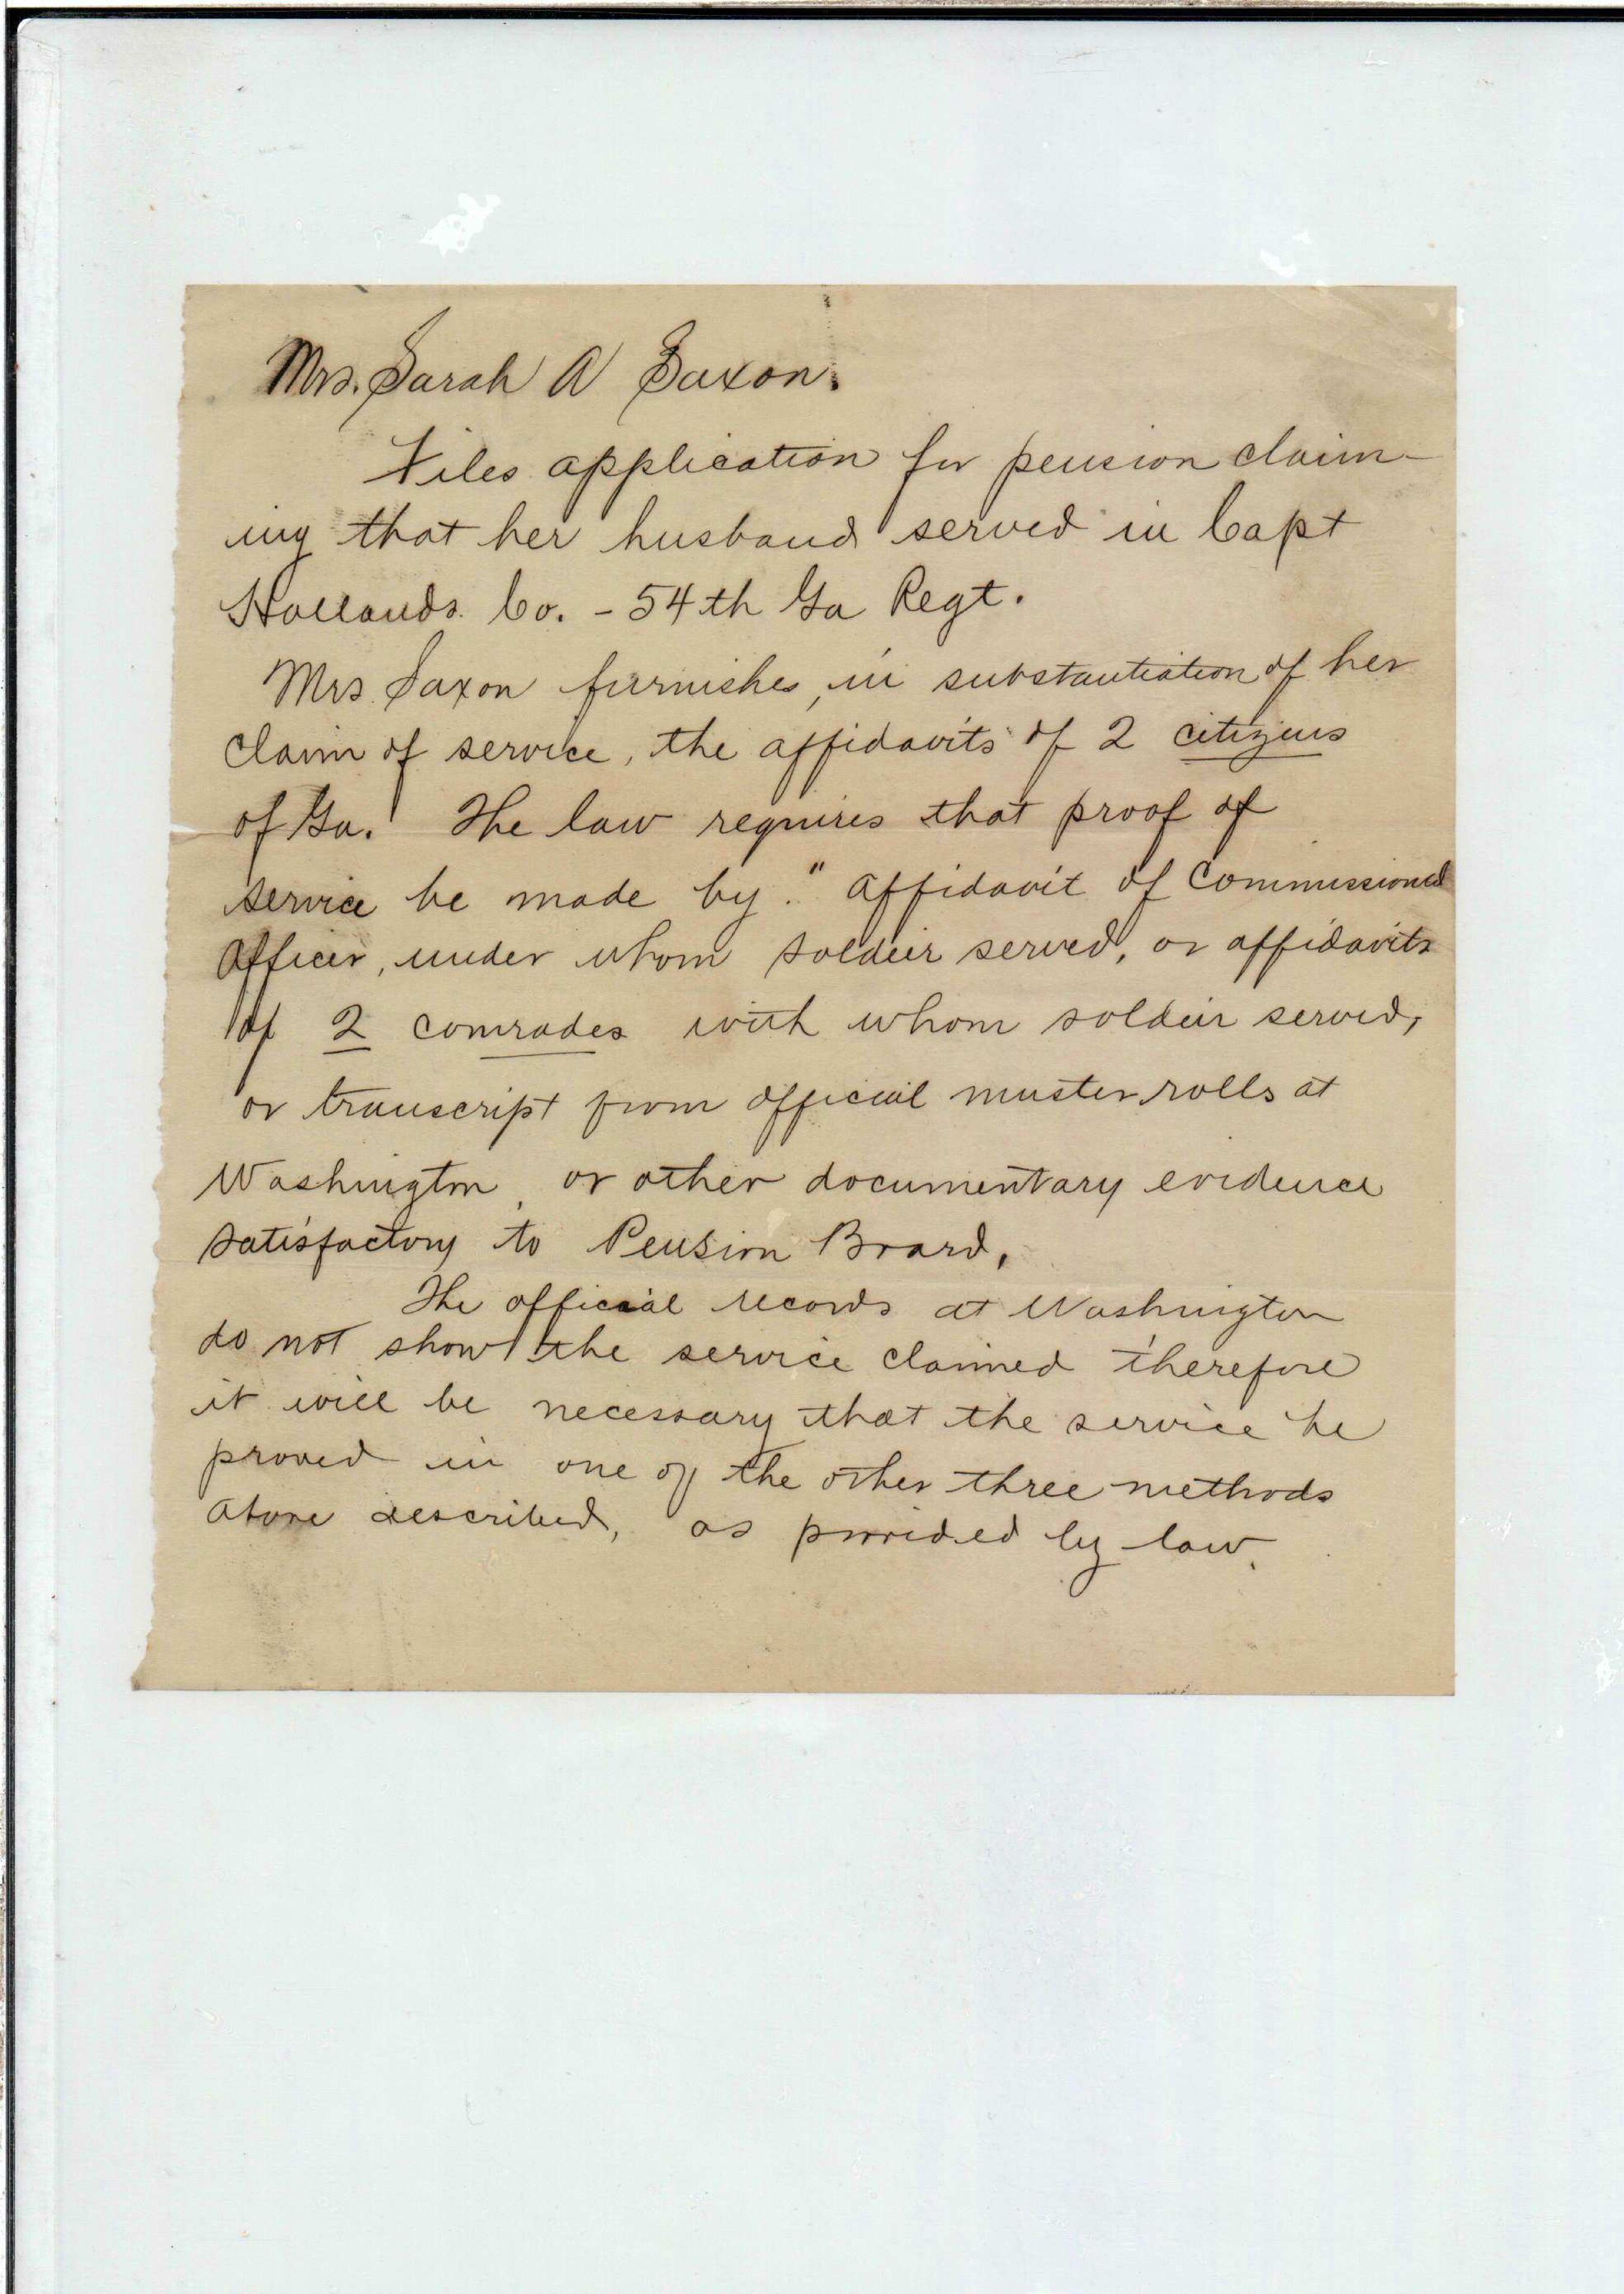 Mrs. Sarah A Saxon.
Files application for pension claim-
ing that her husband served in Capt
Hollands Co. - 54th Ga Regt.
Mrs. Saxon furnishes, in substantiation of her
claim of service, the affidavits of 2 citizens
of Ga. The law requires that proof of
service be made by "affidavit of Commissioned
Officer, under whom soldeir served, or affidavits
of 2 comrades with whom soldeir served,
or transcript from official muster rolls at
Washington, or other documentary evidence
satisfactory to Pension Board.
The official records at Washington
do not show the service claimed therefore
it will be necessary that the service be
proved in one of the other three methods
above described, as provided by law.